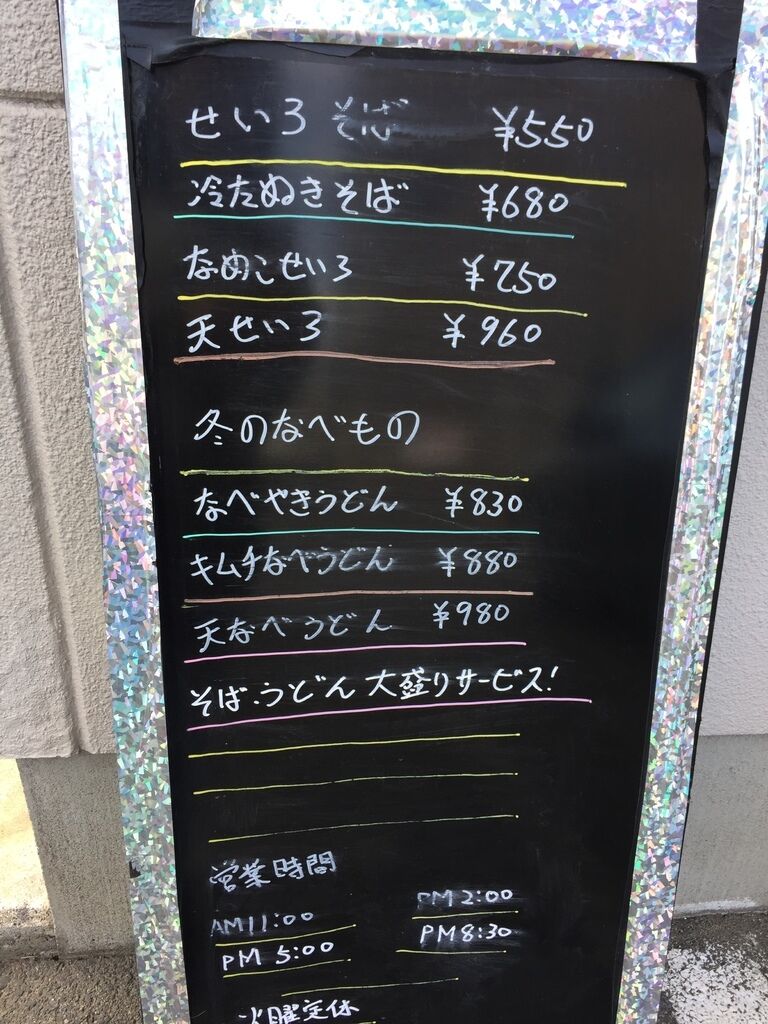 せいろそば ¥550
冷たぬきそば ¥680
なめこせいろ ¥750
天せいろ ¥960
冬のなべもの
なべやきうどん ¥830
キムチなべうどん ¥880
天なべうどん ¥980
そば・うどん 大盛りサービス!
営業時間
AM11:00 PM2:00
PM 5:00 PM8:30
火曜定休